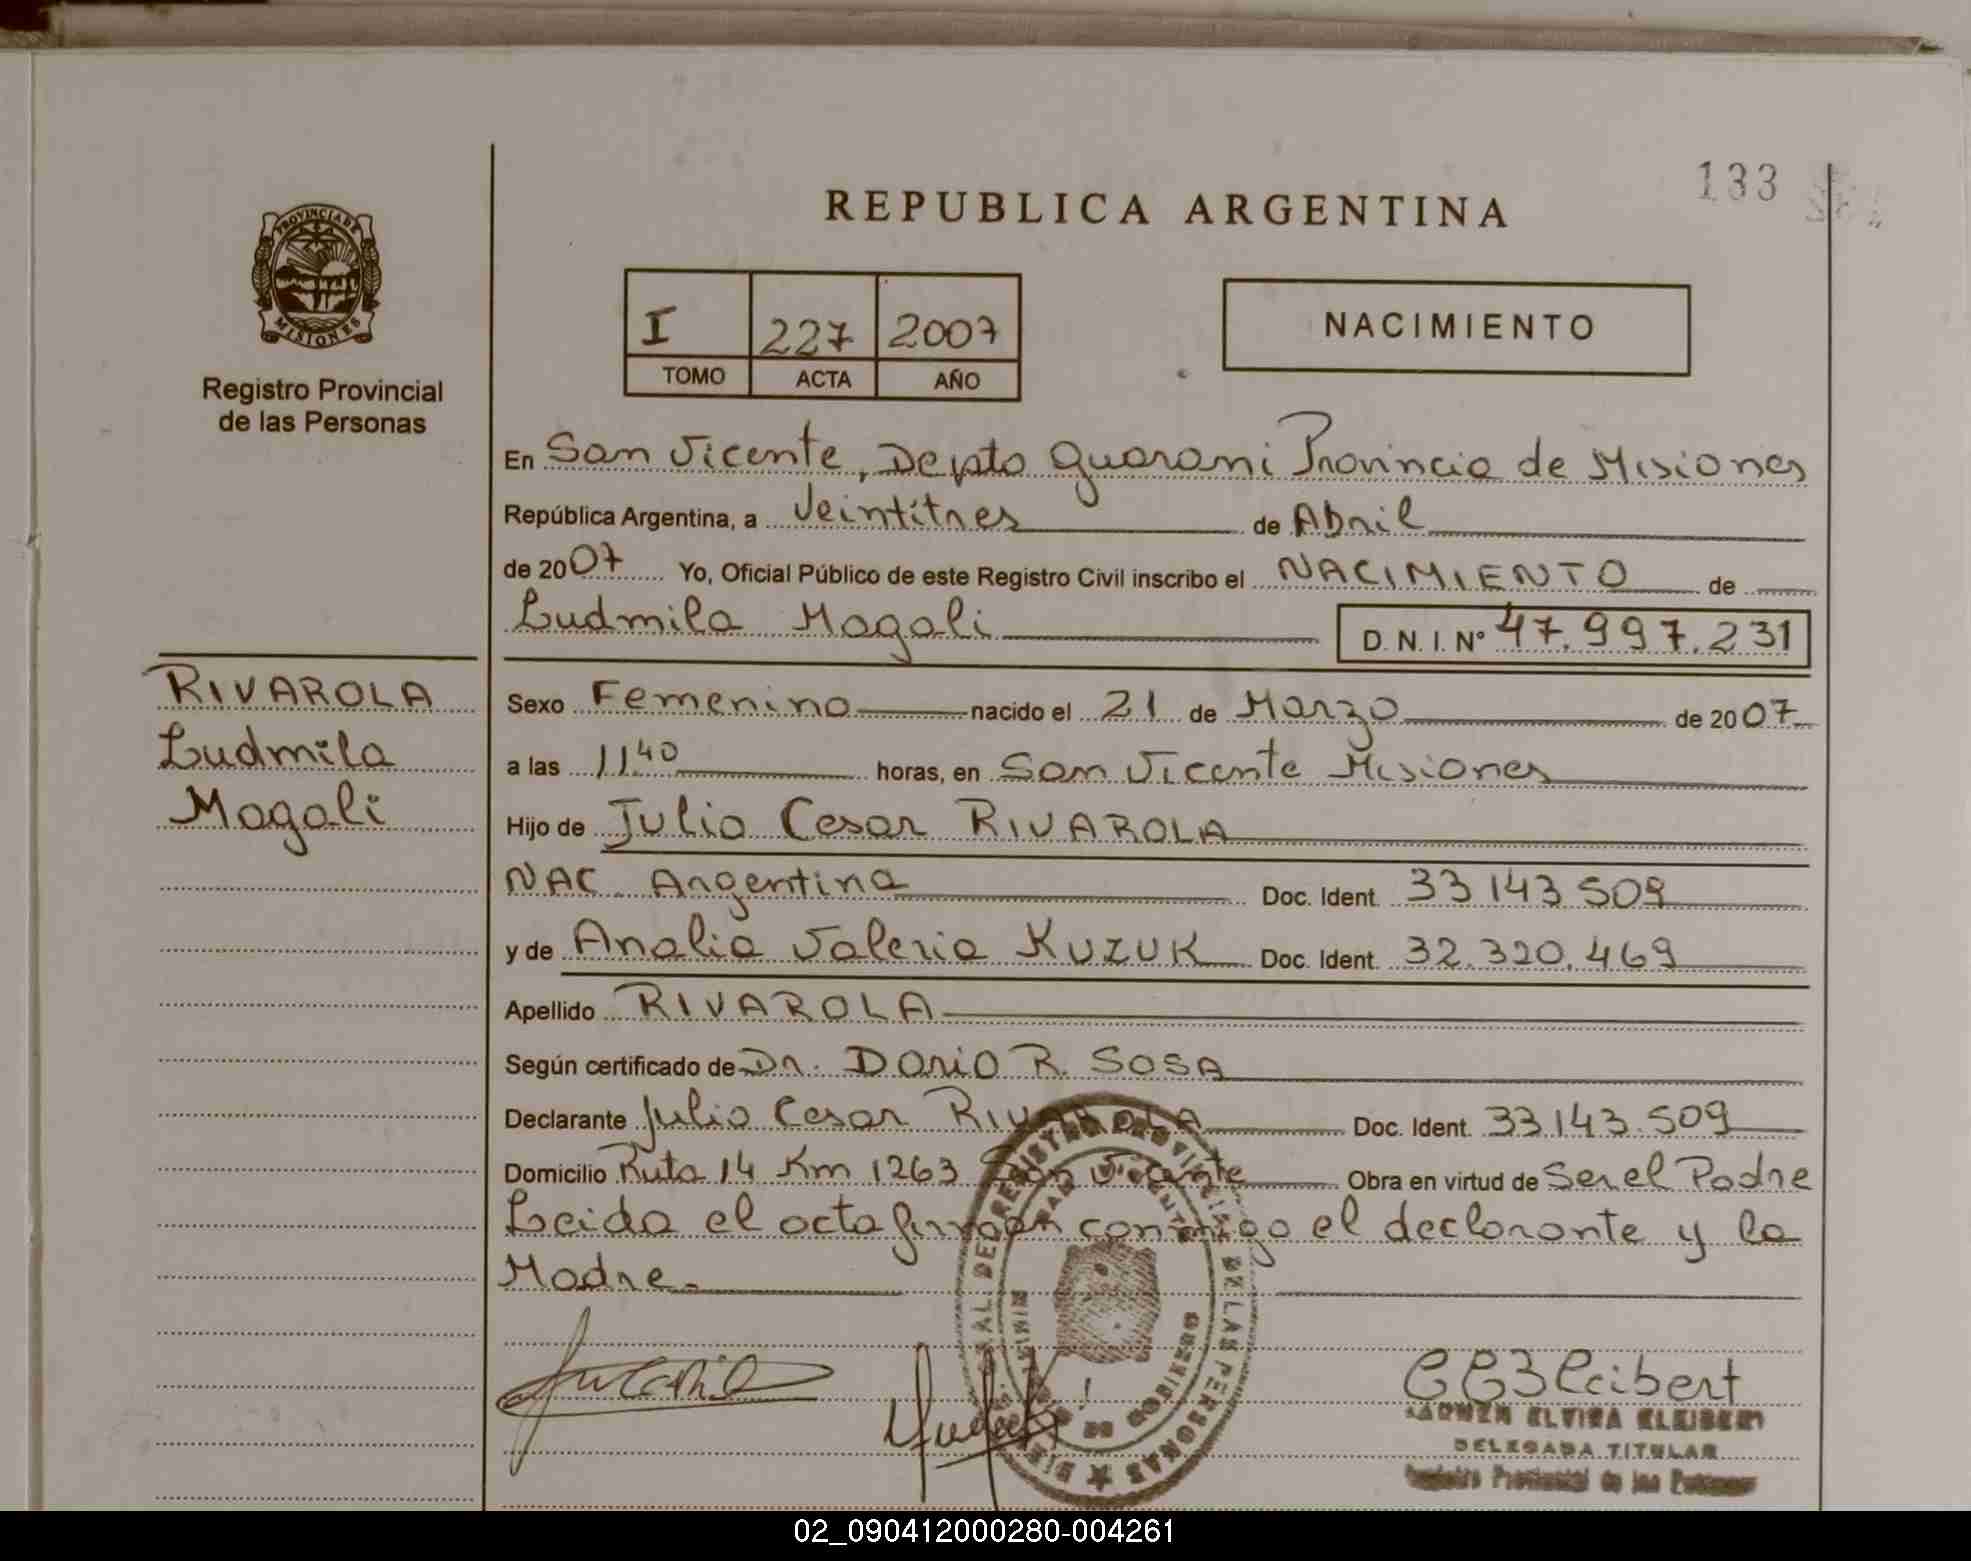 133
REPUBLICA ARGENTINA
PROVINCIA DE
MISIONES
Registro Provincial
de las Personas
I 227 2007
TOMO ACTA AÑO
NACIMIENTO
En San Vicente, Depto Guarani Provincia de Misiones
República Argentina, a Veintitres de Abril
de 2007 Yo, Oficial Público de este Registro Civil inscribo el NACIMIENTO de
Ludmila Magali D. N. I. Nº 47.997.231
RIVAROLA
Ludmila
Magali
Sexo Femenino nacido el 21 de Marzo de 2007
a las 11 40 horas, en San Vicente Misiones
Hijo de Julio Cesar RIVAROLA
NAC. Argentina Doc. Ident. 33 143 509
y de Analia Valeria KUZUK Doc. Ident. 32.320.469
Apellido RIVAROLA
Según certificado de Dr. Dario R. SOSA
Declarante Julio Cesar RIVAROLA Doc. Ident. 33.143.509
Domicilio Ruta 14 Km 1263 San Vicente Obra en virtud de Ser el Padre
Leida el acta firman conmigo el declarante y la
Madre.
DEL REGISTRO PROVINCIAL DE LAS PERSONAS
CARMEN ELVIRA KLEIBERT
DELEGADA TITULAR
Registro Provincial de las Personas
02_090412000280-004261